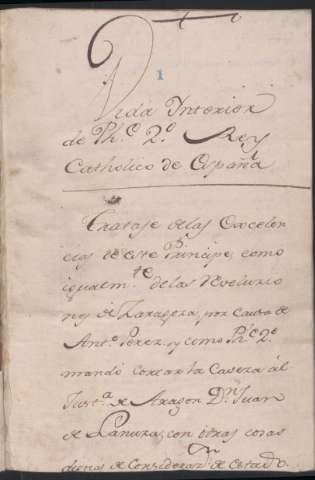 1
Vida Interior
de Phe. 2.º Rey
Catholico de España
Tratase de las Excelen
cias de este Principe, como
igualm.te de las Revolucio
nes de Zaragoza, por causa de
Ant.º Perez, y como Phe. 2.º
mandó cortar la Caveza al
Just.ª de Aragon D.n Juan
de Lanuza, con otras cosas
dignas de Considerar de Estado.